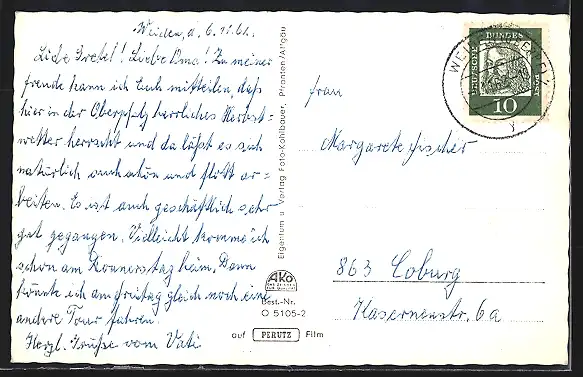 Weiden, d. 6.11.61.
Liebe Gretel! Liebe Oma! Zu meiner
Freude kann ich Euch mitteilen, daß
hier in der Oberpfalz herrliches Herbst=
wetter herrscht und da läßt es sich
natürlich auch schön und flott ar=
beiten. Es ist auch geschäftlich sehr
gut gegangen. Vielleicht komme ich
schon am Donnerstag heim. Dann
könnte ich am Freitag gleich noch eine
andere Tour fahren.
Herzl. Grüße vom Vati
Eigentum u. Verlag Foto-Kohlbauer, Pfronten/Allgäu
AKO
Best.-Nr.
O 5105-2
auf PERUTZ Film
DEUTSCHE BUNDESPOST
10
WEIDEN
y
Frau
Margarete Fischer
863 Coburg
Kasernenstr. 6a